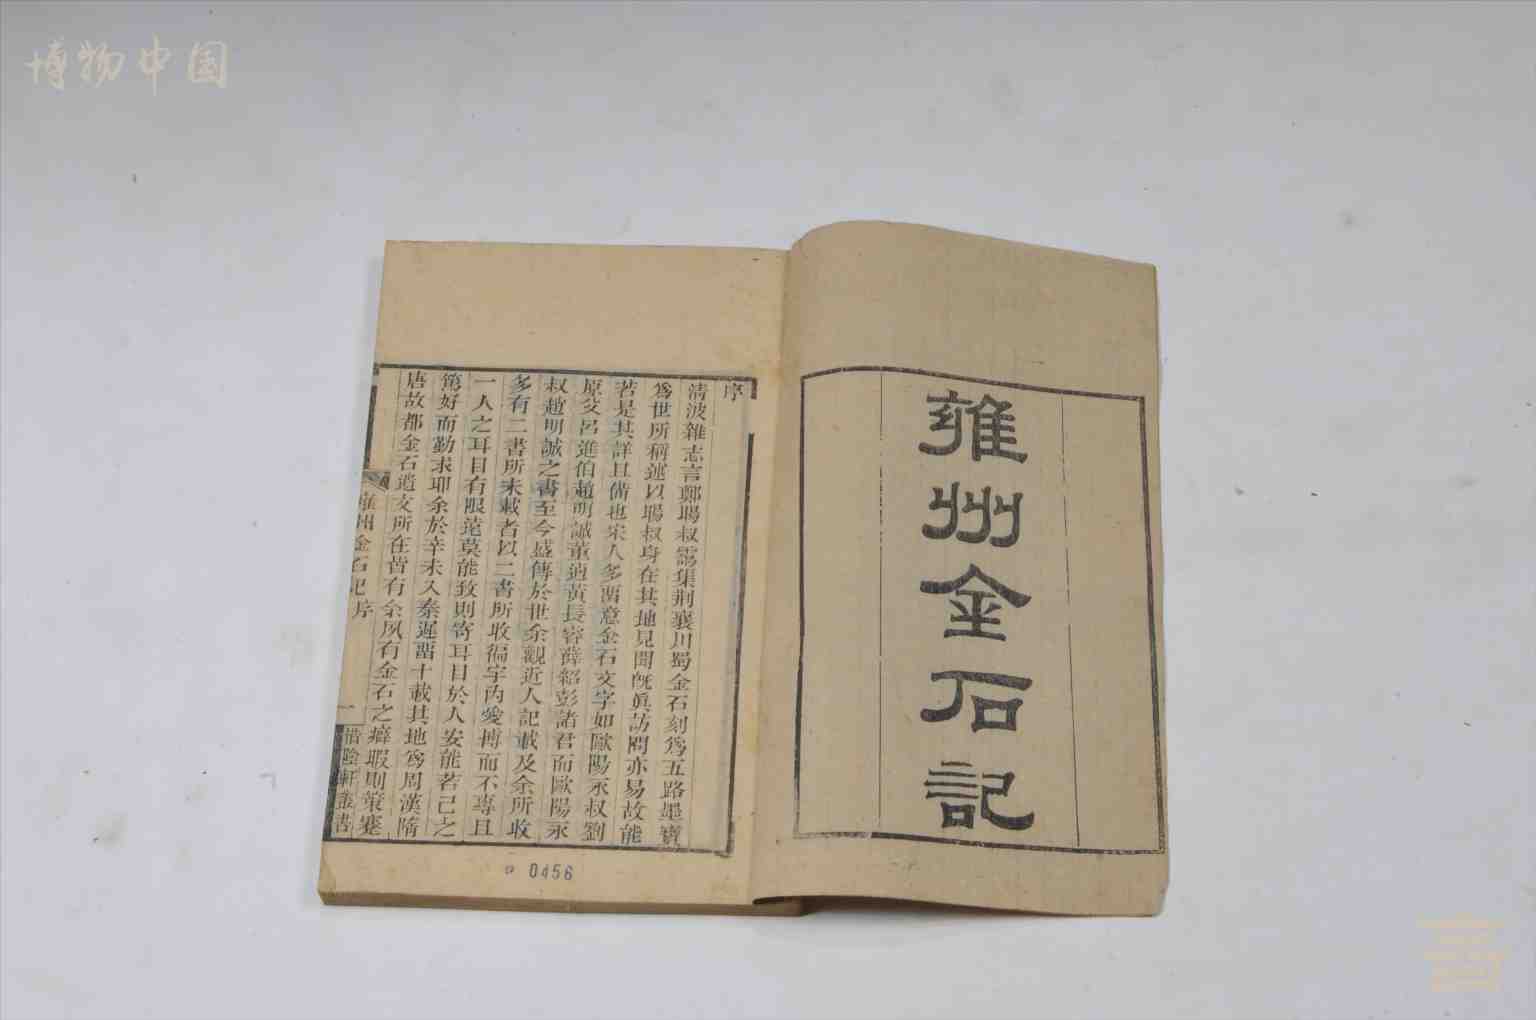 博物中国
雍州金石記
序
清波雜志言鄭暘叔霭集荆襄川蜀金石刻爲五路墨寶
爲世所稱述以暘叔身在其地見聞旣眞訪問亦易故能
若是其詳且備也宋人多畱意金石文字如歐陽永叔劉
原父呂進伯趙明誠董逌黃長睿薛紹彭諸君而歐陽永
叔趙明誠之書至今盛傳於世余觀近人記載及余所收
多有二書所未載者以二書所收徧宇內愛博而不專且
一人之耳目有限莫能致則寄耳目於人安能若己之
篤好而勤求耶余於辛未入秦遲畱十載其地爲周漢隋
唐故都金石遺文所在皆有余夙有金石之癖暇則策蹇
雍州金石記序
一
惜陰軒叢書
0456